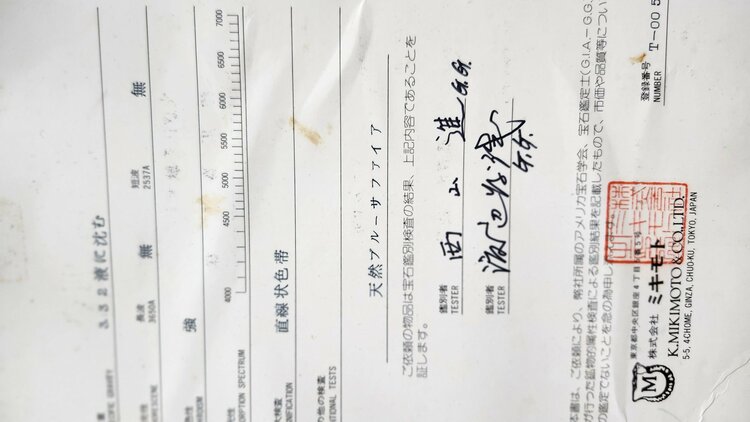 重
CIFIC GRAVITY
3.32 液に沈む
長波
3650A
無
短波
2537A
無
ORESCENCE
色性
HROISM
強
ORPTION SPECTRUM
4000 4500 5000 5500 6000 7000
大検査
GNIFICATION
直線状色帯
の他の検査
TIONAL TESTS
天然ブルーサファイア
ご依頼の物品は宝石鑑別検査の結果、上記内容であることを
証します。
鑑別者
TESTER
西山 進 G.G.
鑑別者
TESTER
G.G.
本書は、ご依頼により、弊社所属のアメリカ宝石学会、宝石鑑定士(G.I.A.–G.G.
が行った鉱物的属性検査による鑑別結果を記載したもので、市価や品質等につい
の鑑定でないことを念の為申し
登録番号
NUMBER
T-005
M
東京都中央区銀座4丁目5番5号
株式会社 ミキモト
K.MIKIMOTO & CO.,LTD.
5-5, 4CHOME, GINZA, CHUO-KU, TOKYO, JAPAN